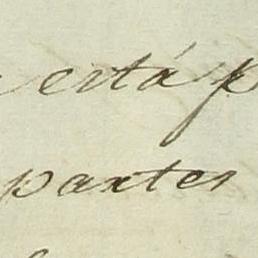 está p
partes